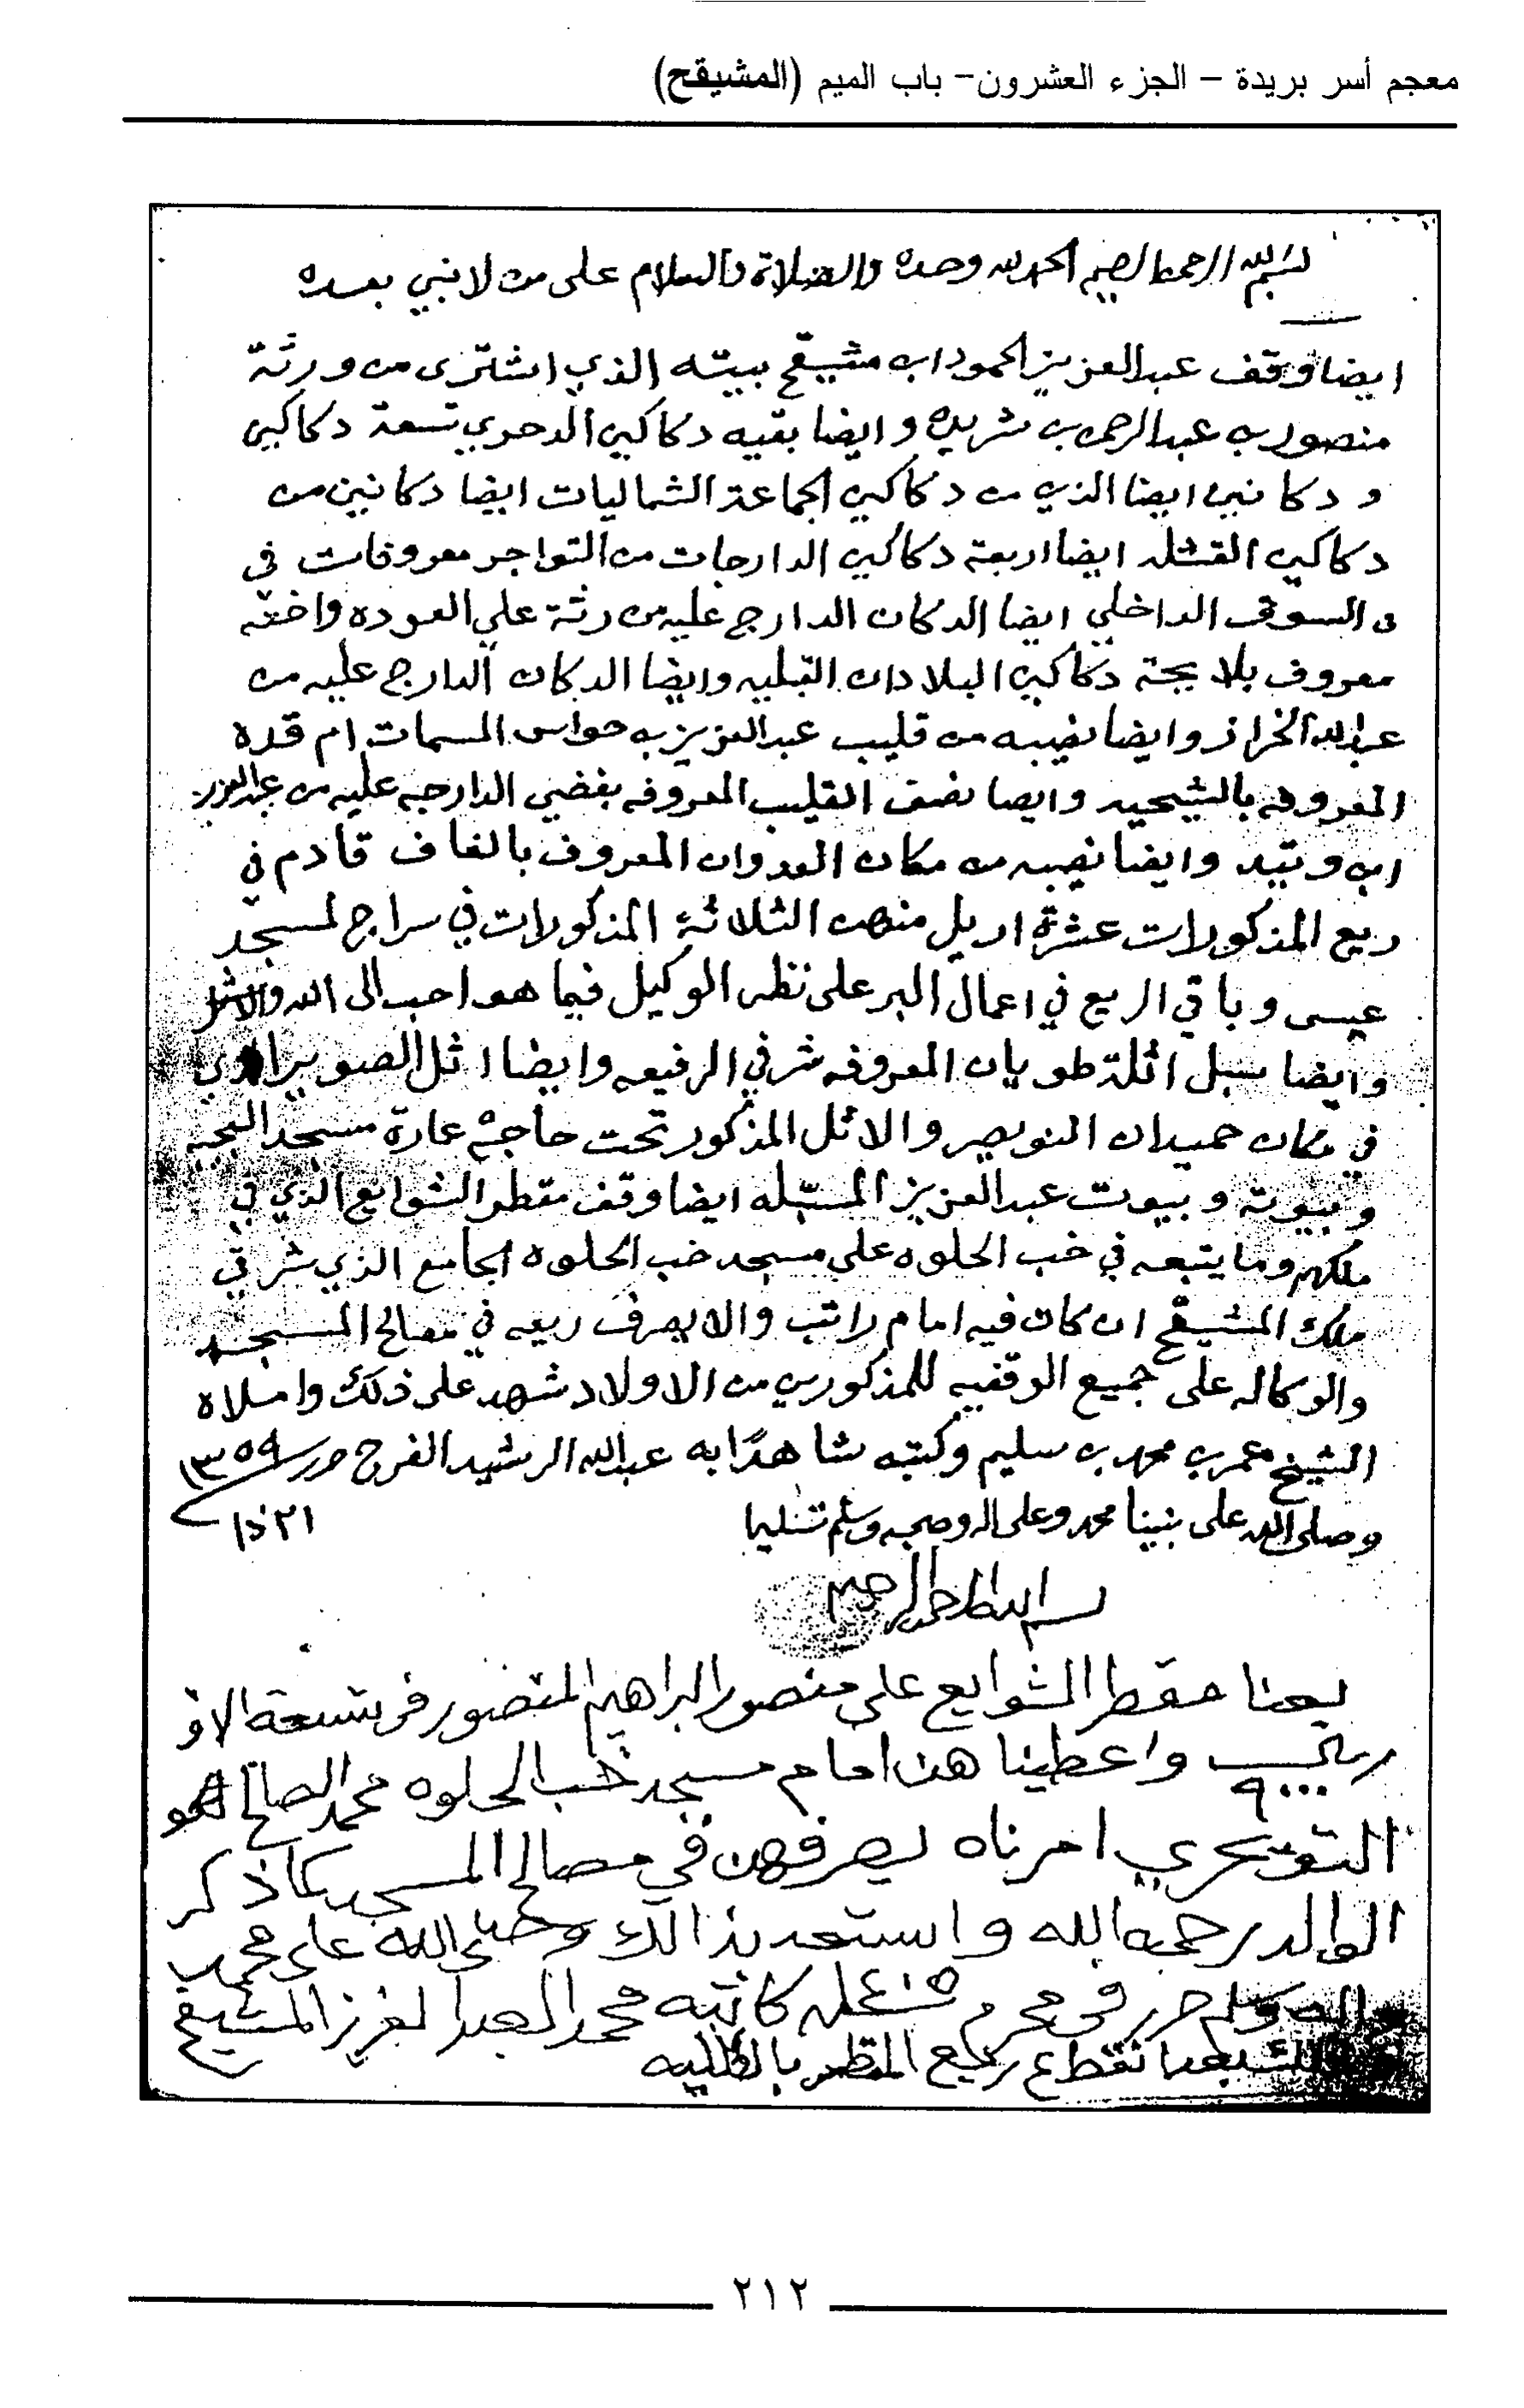 معجم أسر بريدة – الجزء العشرون– باب الميم (المشيقح)
بسم الله الرحمن الرحيم الحمد لله وحده والصلاة والسلام على من لا نبي بعده
ايضا وقف عبد العزيز الحمود ابن مشيقح بيته الذي اشترى من ورثة
منصور بن عبد الرحمن بن شريده وايضا بقيه دكاكين تسعة دكاكين
و دكانين ايضا الذي من دكاكين الجماعة الشماليات ايضا دكانين من
دكاكين القشله ايضا اربعة دكاكين الدارجات من التواجر معروفات في
في السوق الداخلي ايضا الدكان الدارج عليه من رثة علي العوده واخته
معروف دكاكين القبليه وايضا الدكان الدارج عليه من
عبد الله الخراز وايضا نصيبه من قليب عبد العزيز بن حواس المسمات ام قدره
المعروفه بالشيحيه وايضا نصف القليب المعروفه بغضي الدارجه عليه من عبد العزيز
ابن وايضا نصيبه من مكان العدوان المعروف بالغاف قادم في
ريع المذكورات عشرة اريل منهن الثلاثة المذكورات في سراج لمسجد
عيسى وباقي الريع في اعمال البر على نظر الوكيل فيما هو احب الى الله
وايضا سبل اثلة طويان المعروفه شرقي الرفيعه وايضا اثل الصوير الذي
في مكان حميدان النويصر والاثل المذكور تحت حاجة عارة مسجد
وبيوته وبيوت عبد العزيز المسبله ايضا وقف مقطر الشوايع الذي في
ملكهم وما يتبعه في خب الحلوه على مسجد خب الحلوه الجامع الذي شرقي
ملك المشيقح ان كان فيه امام راتب والا يصرف ريعه في مصالح المسجد
والوكاله على جميع الوقفيه للمذكورين من الاولاد شهد على ذلك واملاه
الشيخ عمر بن محمد بن سليم وكتبه شاهدًا به عبد الله الرشيد الفرج حرر ١٣٥٩
وصلى الله على نبينا محمد وعلى اله وصحبه وسلم تسليما ٢١
بسم الله الرحمن الرحيم
بعنا مقطر الشوايع على منصور البراهيم المنصور في تسعة الاف
ريال ٩٠٠٠ واعطينا هن امام مسجد خب الحلوه محمد الصالح
التويجري امرناه يصرفهن في مصالح المسجد كما ذكر
الوالد رحمه الله واستعد بذالك وصلى الله على محمد
واله وسلم حرر في محرم كاتبه محمد العبد العزيز المشيقح
نقطاع ريع المقطر بالكليه
٢١٢